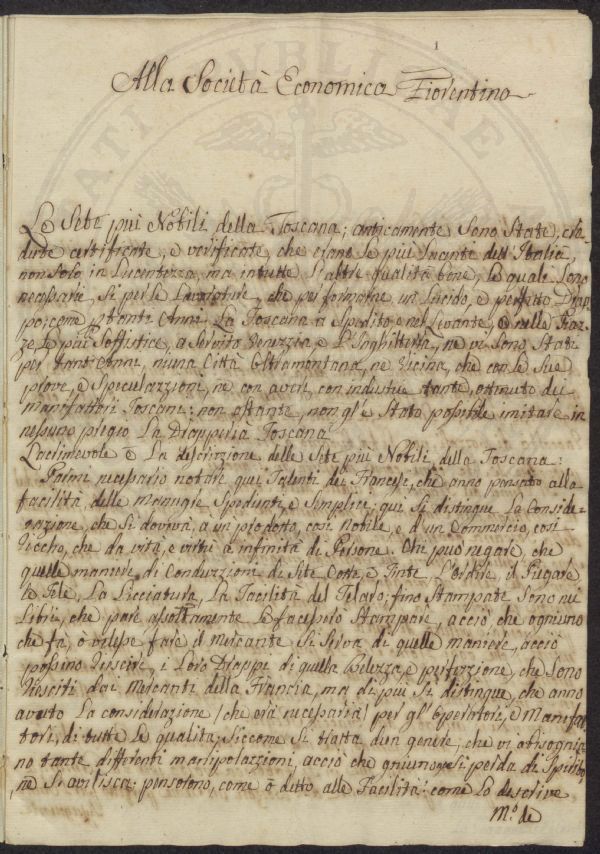 1
Alla Società Economica Fiorentina
Le Sete più Nobili della Toscana; anticamente Sono State, cre-
dute certifrente, e verificate, che erano le più Lucante dell'Italia,
non Solo in Lucentezza, ma intutte l'altre qualità bone; le quale Sono
necessarie, Si per le Lavorature, che per formarne un Lucido, e perfetto Drap-
po; come p tanti Anni La Toscana a Spedito, e nel Levante, e nelle Piaz-
ze le più Soffistice, a Servito Venezzia e l'Inghilterra, ne vi Sono Stati
per tant'Anni, niuna Città Oltramontana, ne Vicina, che con le Sue
prove, e Speculazzioni, ne con averi, con industrie tante, ottinuto dei
manofattori Toscani: non ostante, non gl'è Stato possibile imitare in
nessuno pregio La Drapperia Toscana
Laclimevole è La descrizione delle Sete più Nobili della Toscana:
Parmi necessario notare quei Talenti dei Francese, che anno pensato alla
facilità delle manugie Spedienti, e Semplice; qui Si distingue La Conside-
razione, che Si doveva, a un prodotto, così Nobile, e d'un Commercio, così
ricco, che da vita, e virtù a infinità di Persone. Chi può negare, che
quelle maniere, di Conduzzioni di Sete Cotte, e Tinte, L'ordire, il Piegare
le Tele, La Licciatura, La Facilità del Telaro; fino Stampate Sono nei
Libri, che pare assoltamente le facesserò Stampare, acciò che ogniuno
che fà, ò volese fare il Mercante Si Serva di quelle maniere, acciò
possino riescire, i Loro Drappi di quella belezza, e perfezzione, che Sono
riesciti dai Mercanti della Francia, ma di più Si distingue, che anno
avuto La considerazione (che era necessaria) per gl'Operatore, e Manifat-
tori, di tutte le qualità; Siccome Si tratta d'un genere, che vi abisognia-
no tante differenti manipolazzioni, acciò che gniuno Si perda di Spirito,
ne Si avilisca: pensorono, come ò detto alle Facilità: come lo descrive
M.º de